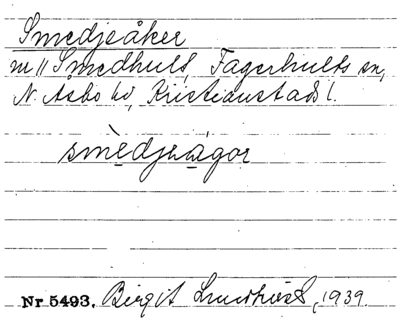 Smedjeåker
m // Smedhult, Fagerhults sn,
N. Åsbo hd, Kristianstads l.
smèdjeàgor
Nr 5493. Birgit 1939